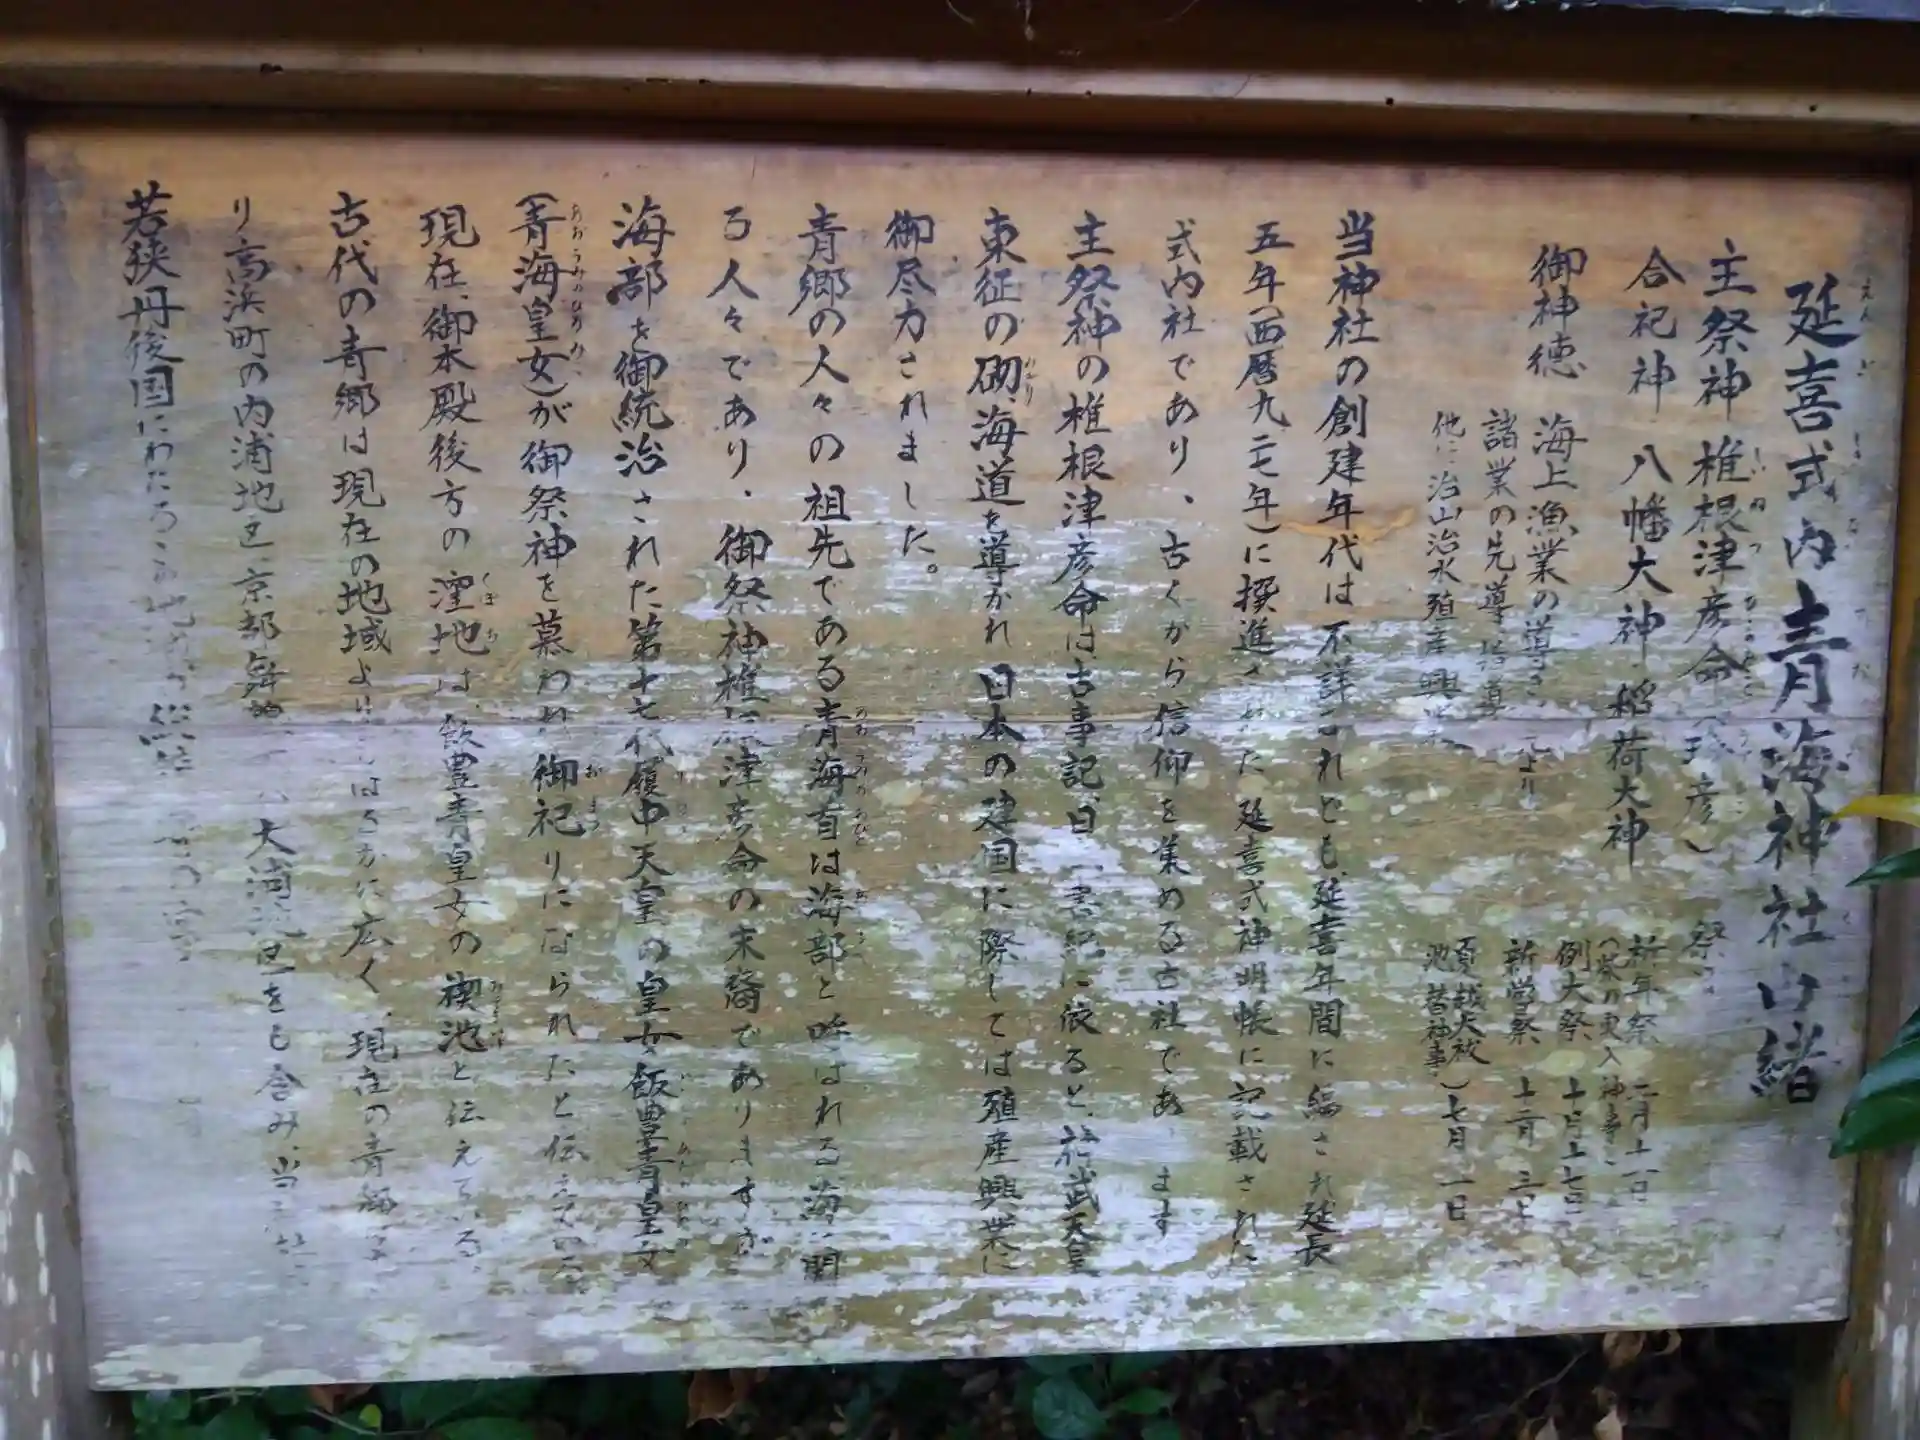 延喜式内青海神社由緒
主祭神 椎根津彦命
合祀神 八幡大神 稲荷大神
御神徳 海上漁業の導き
諸業の先導 指導
他に治山治水殖産興
祭
新年祭 二月十一日
例大祭
新嘗祭
夏越大祓
池替神事）七月一日
当神社の創建年代は不詳なれども、延喜年間に編され延長
五年（西暦九二七年）に撰進された延喜式神明帳に記載された
式内社であり、古くから信仰を集める古社であります
主祭神の椎根津彦命は、古事記、日本書紀に依ると、神武天皇
東征の砌、海道を導かれ日本の建国に際しては殖産興業に
御尽力されました。
青郷の人々の祖先である青海首は海部と呼ばれる海に関
る人々であり、御祭神椎根津彦命の末裔でありますが
海部を御統治された第十七代履中天皇の皇女飯豊青皇女
（青海皇女）が御祭神を慕われ御祀りになられたと伝えている
現在、御本殿後方の窪地は、飯豊青皇女の禊池と伝えている
古代の青郷は現在の地域よりはるかに広く、現在の青郷
り高浜町の内浦地区、京都 大浦地区をも含み、当
若狭丹後国にわたる